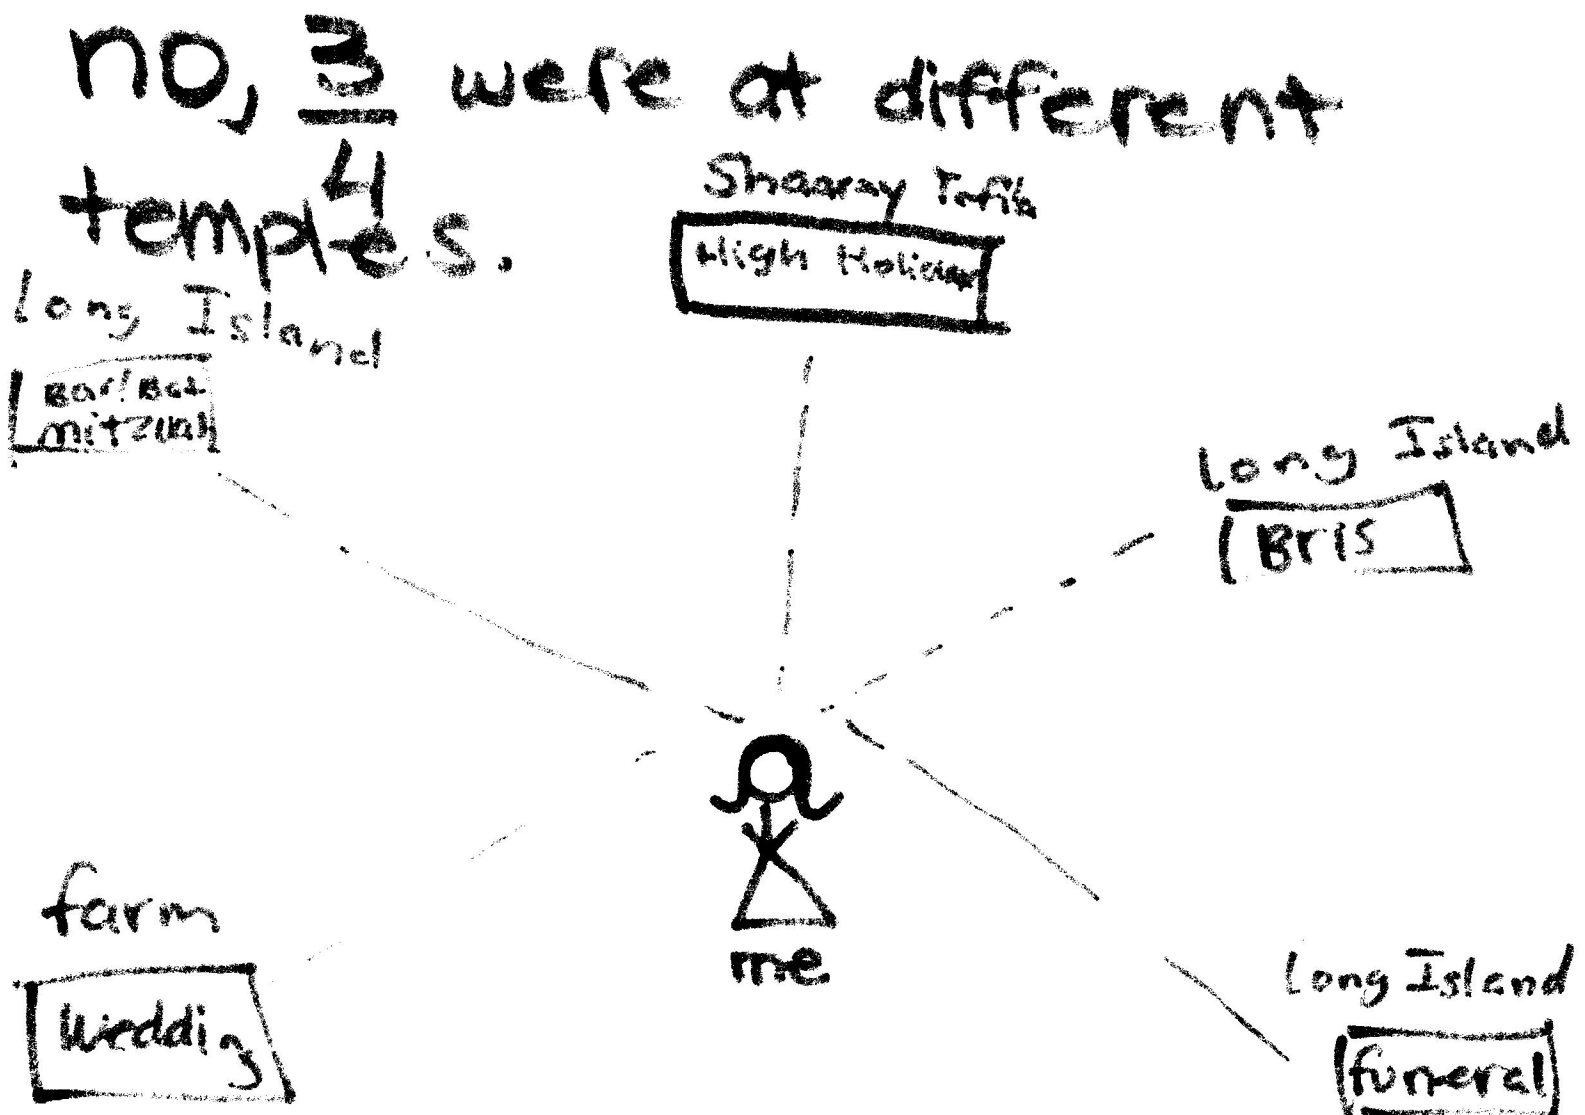 no, 3/4 were at different
temples.
Shaaray Tefila
High Holiday
Long Island
Bar/Bat
mitzvah
Long Island
Bris
me
farm
Wedding
Long Island
funeral